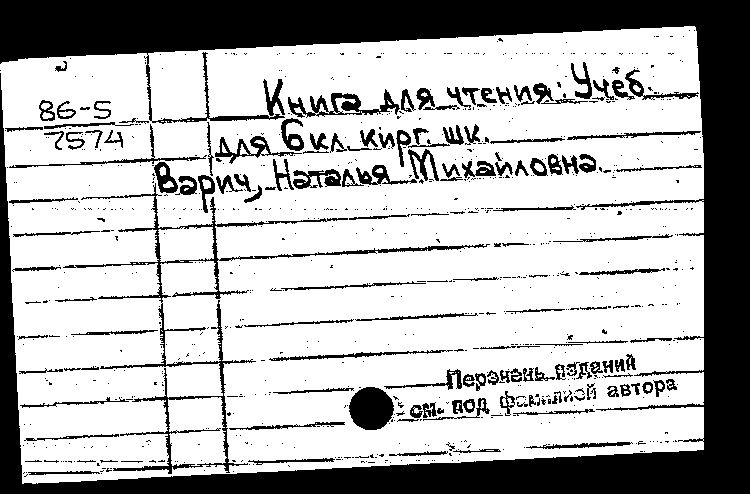 86-5
7574
Книга для чтения: Учеб.
для 6 кл. кирг. шк.
Варич, Наталья Михайловна.
Перечень изданий
см. под фамилией автора